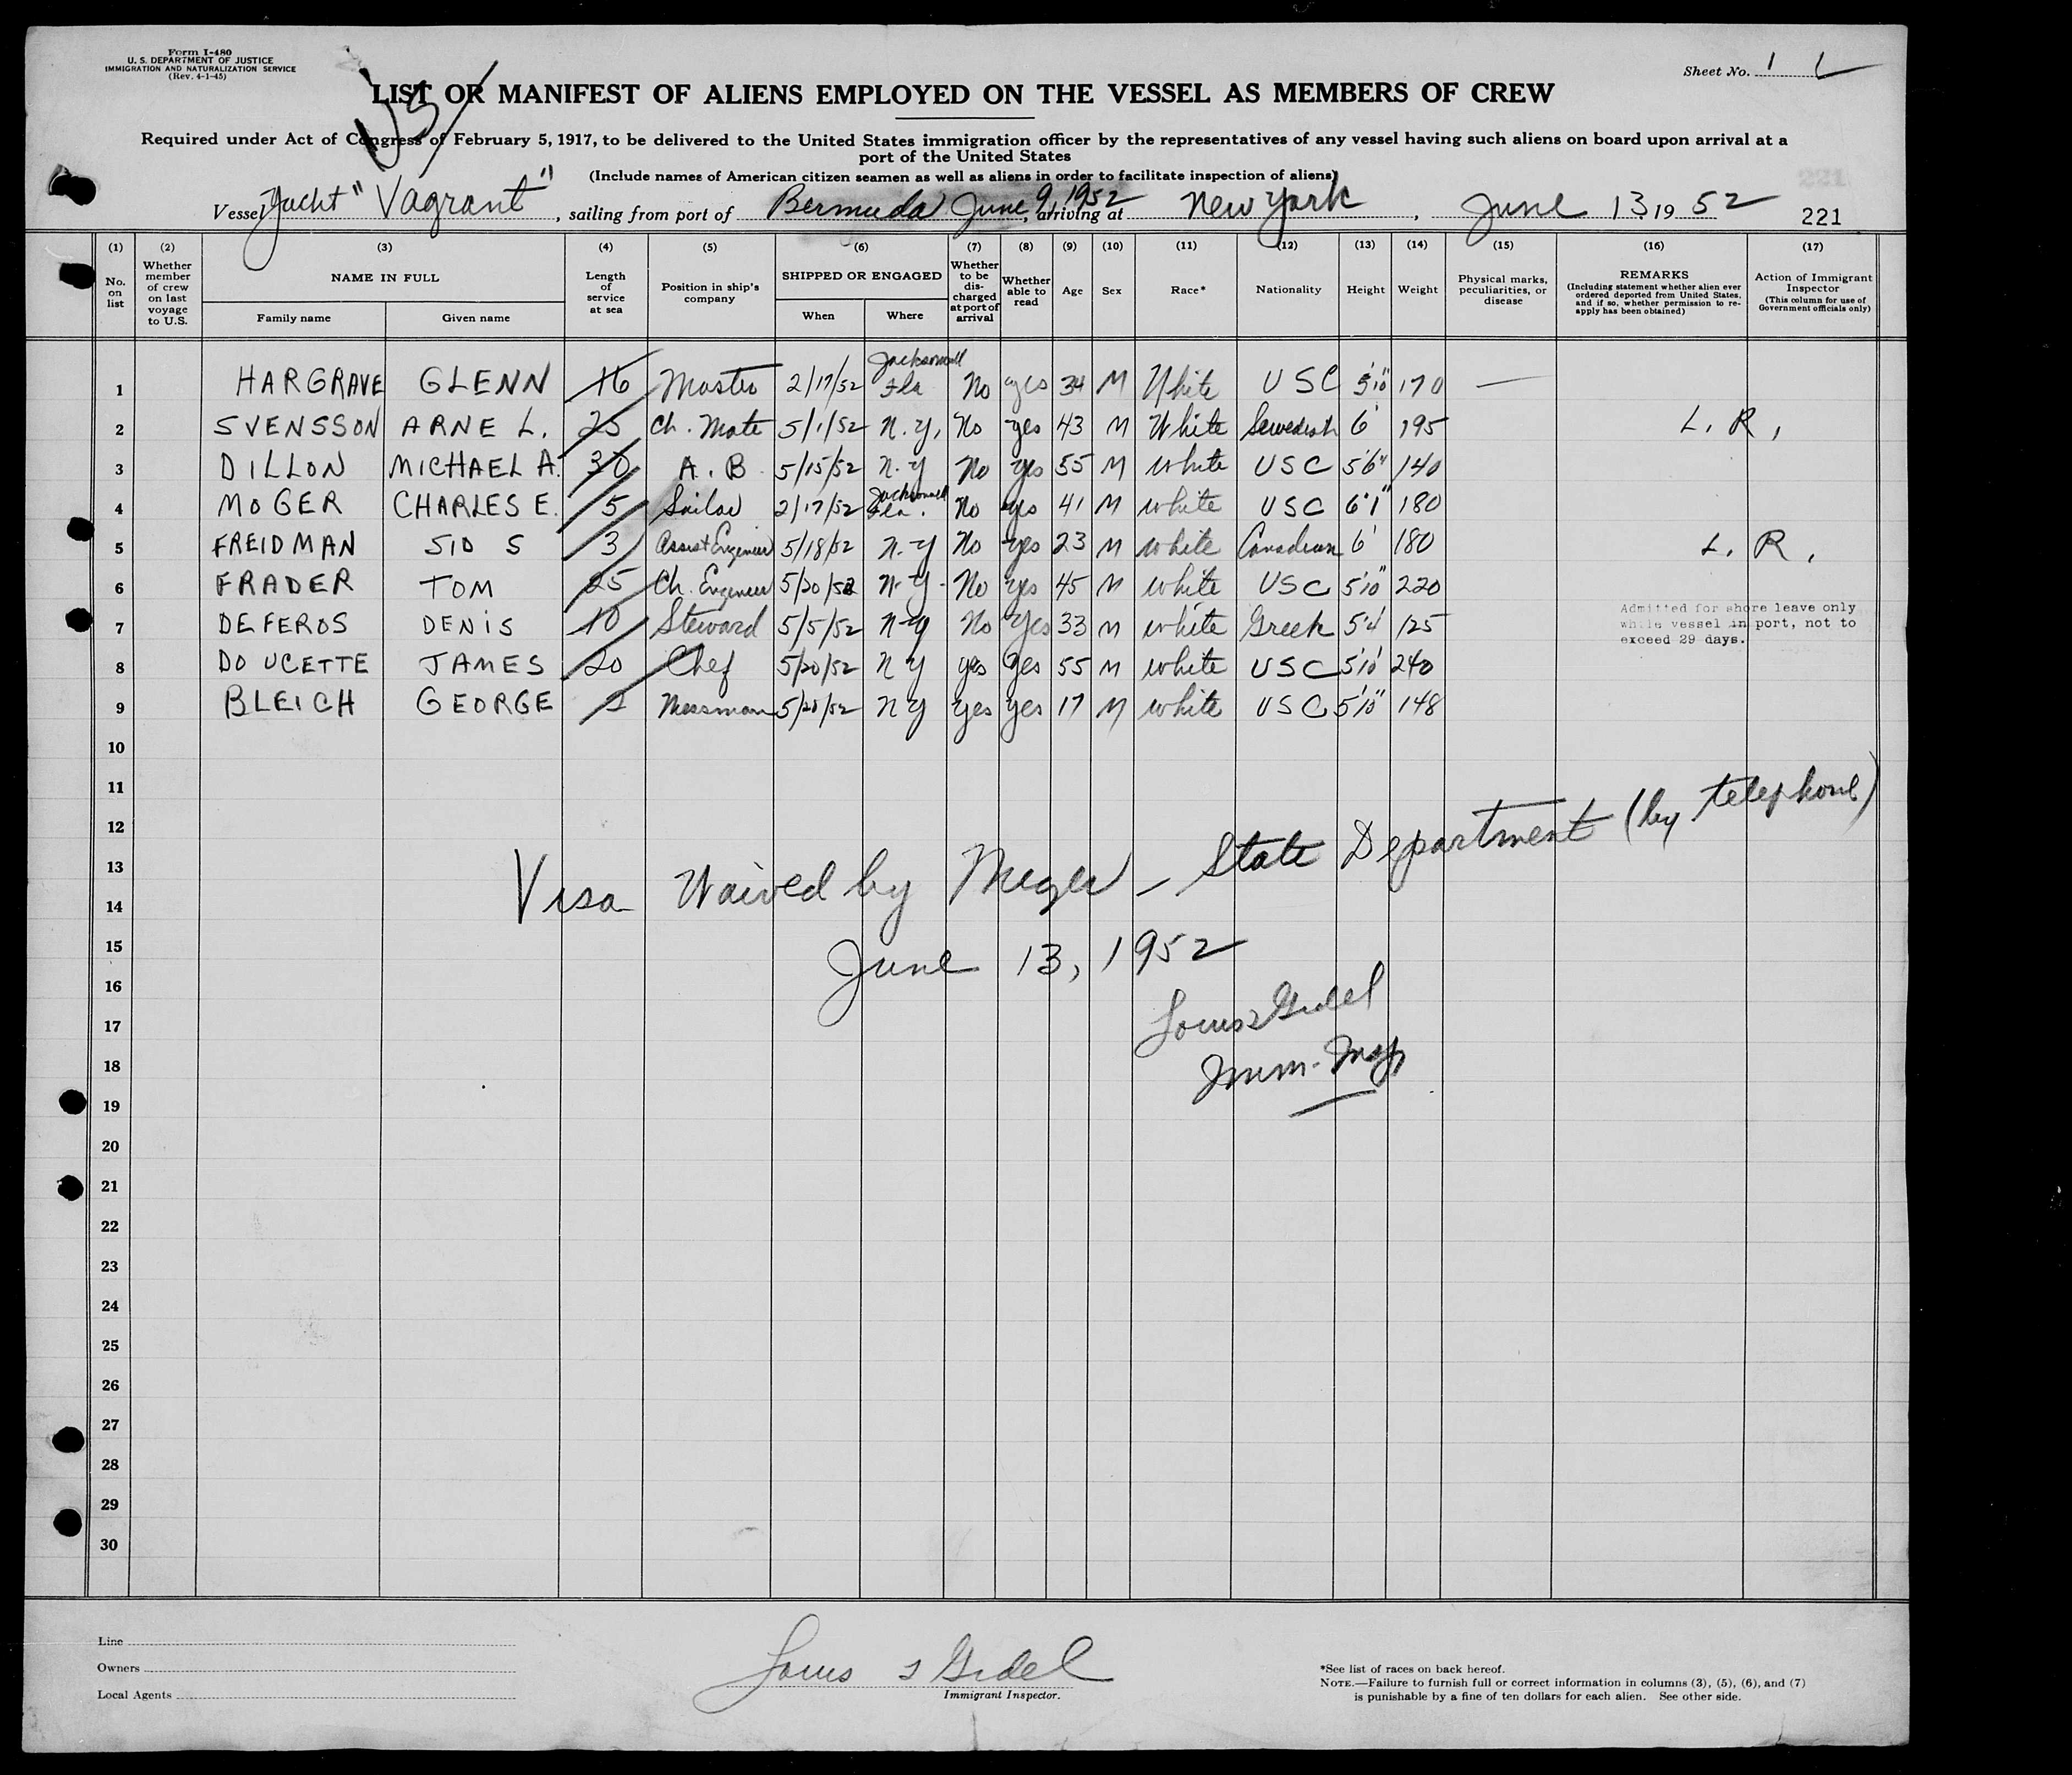 Form I-480
U. S. DEPARTMENT OF JUSTICE
IMMIGRATION AND NATURALIZATION SERVICE
(Rev. 4-1-45)
Sheet No. 1
US
LIST OR MANIFEST OF ALIENS EMPLOYED ON THE VESSEL AS MEMBERS OF CREW
Required under Act of Congress of February 5, 1917, to be delivered to the United States immigration officer by the representatives of any vessel having such aliens on board upon arrival at a
port of the United States
(Include names of American citizen seamen as well as aliens in order to facilitate inspection of aliens)
Vessel Yacht "Vagrant", sailing from port of Bermuda June 9, 1952, arriving at New York, June 13, 1952 221
(1) No. on list (2) Whether member of crew on last voyage to U.S. (3) NAME IN FULL Family name Given name (4) Length of service at sea (5) Position in ship's company (6) SHIPPED OR ENGAGED When Where (7) Whether to be discharged at port of arrival (8) Whether able to read (9) Age (10) Sex (11) Race* (12) Nationality (13) Height (14) Weight (15) Physical marks, peculiarities, or disease (16) REMARKS (Including statement whether alien ever ordered deported from United States, and if so, whether permission to re-apply has been obtained) (17) Action of Immigrant Inspector (This column for use of Government officials only)
1 HARGRAVE GLENN 16 Master 2/17/52 Jacksonvill Fla No yes 34 M White USC 5'10" 170 —
2 SVENSSON ARNE L. 25 Ch. Mate 5/1/52 N.Y. No yes 43 M White Sewedish 6' 195 L. R.
3 DILLON MICHAEL A. 30 A. B. 5/15/52 N.Y No yes 55 M White USC 5'6" 140
4 MOGER CHARLES E. 5 Sailor 2/17/52 Jacksonvill Fla. No yes 41 M white USC 6'1" 180
5 FREIDMAN SID S 3 Assist Engineer 5/18/52 N.Y No yes 23 M white Canadian 6' 180 L. R.
6 FRADER TOM 25 Ch. Engineer 5/20/52 N.Y. No yes 45 M white USC 5'10" 220
7 DEFEROS DENIS 10 Steward 5/5/52 NY No Yes 33 M white Greek 5'4 125 Admitted for shore leave only while vessel in port, not to exceed 29 days.
8 DOUCETTE JAMES 20 Chef 5/20/52 NY yes yes 55 M white USC 5'10' 240
9 BLEICH GEORGE Messman 5/20/52 NY yes yes 17 M white USC 5'10" 148
10
11
12
13
14
Visa Waived by - State Department (by telephone)
15
June 13, 1952
16
17
Louis Gidel
18
Imm. Insp
19
20
21
22
23
24
25
26
27
28
29
30
Line
Owners
Local Agents
Louis Gidel
Immigrant Inspector.
*See list of races on back hereof.
NOTE.—Failure to furnish full or correct information in columns (3), (5), (6), and (7)
is punishable by a fine of ten dollars for each alien. See other side.